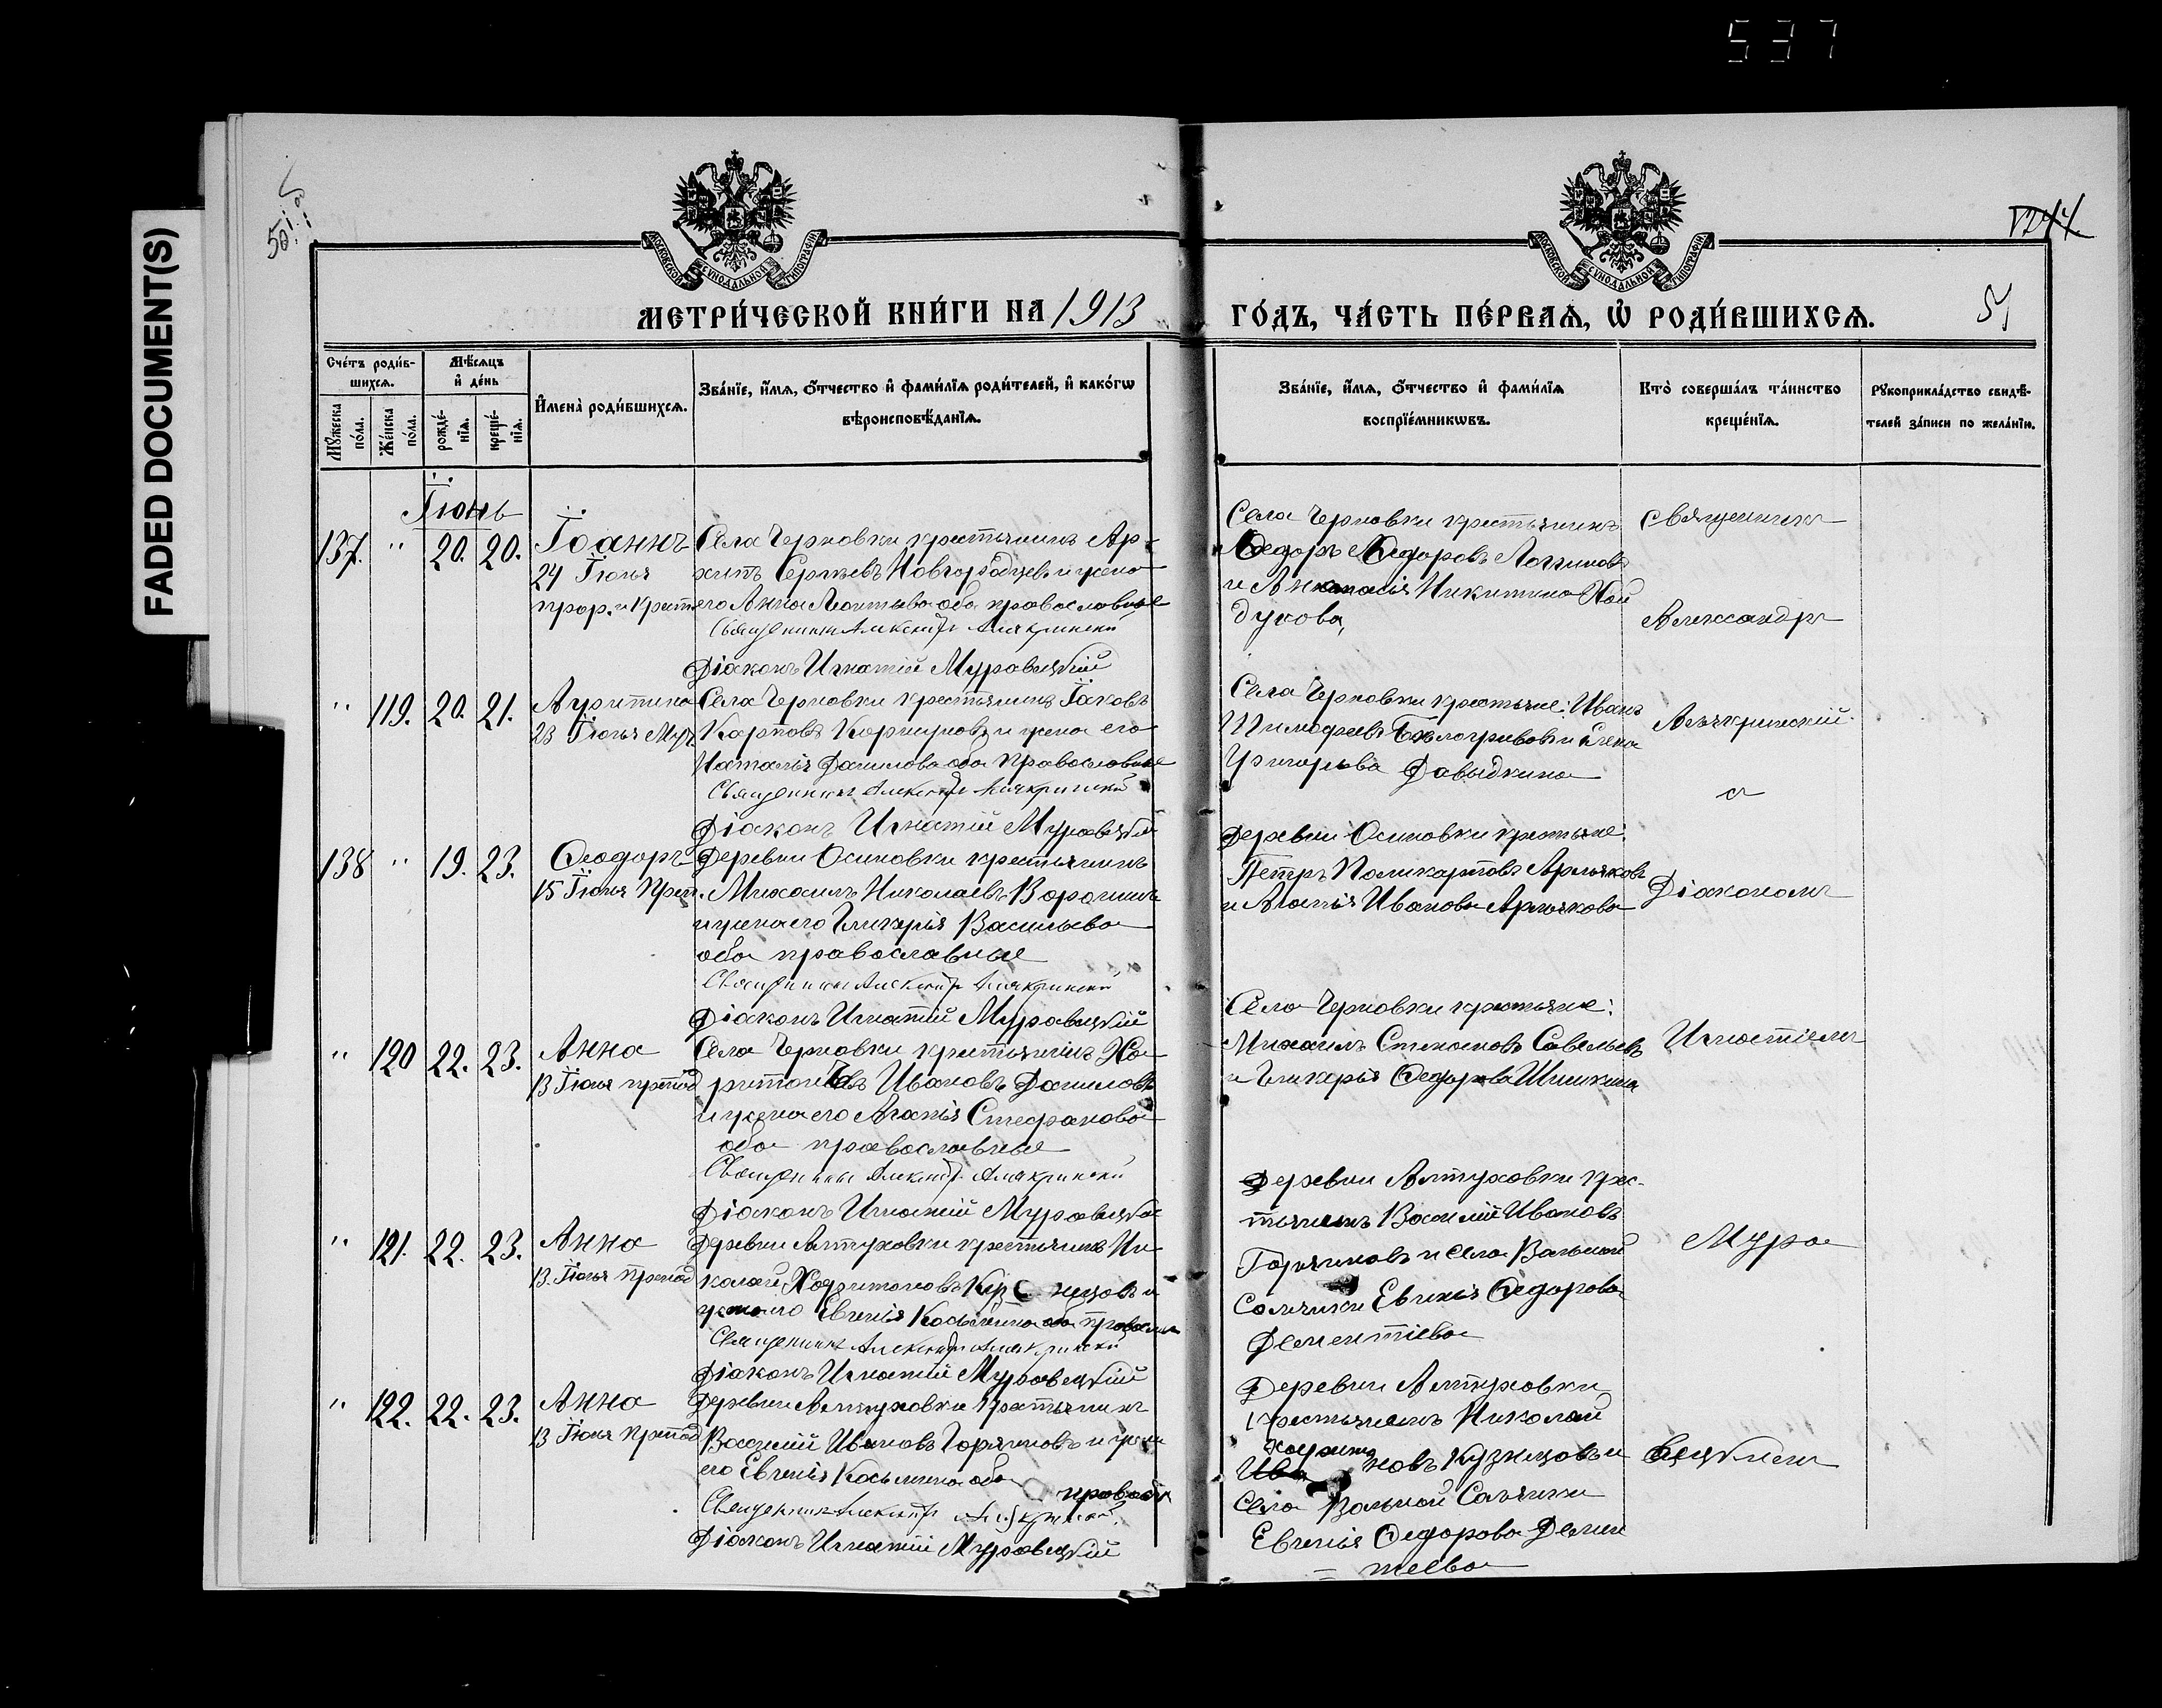 537
FADED DOCUMENT(S)
МОСКОВСКОЙ СѴНОДАЛЬНОЙ ТИПОГРАФІИ
МОСКОВСКОЙ СѴНОДАЛЬНОЙ ТИПОГРАФІИ
МЕТРИ́ЧЕСКОЙ КНИ́ГИ НА 1913
ГО́ДЪ, ЧА́СТЬ ПЕ́РВАѦ, Ѡ҆ РОДИ́ВШИХСѦ.
Сче́тъ роди́в-
шихсѧ.
Мѣ́сѧцъ
и҆ де́нь
Мꙋ́жеска
по́ла.
Же́нска
по́ла.
рожде́-
нїѧ.
креще́-
нїѧ.
И҆мена̀ роди́вшихсѧ.
Зва́нїе, и҆́мѧ, ѻ҆́тчество и҆ фами́лїѧ роди́телей, и҆ како́гѡ
вѣроисповѣ́данїѧ.
Зва́нїе, и҆́мѧ, ѻ҆́тчество и҆ фами́лїѧ
воспрїе́мникѡвъ.
Кто̀ соверша́лъ та́инство
креще́нїѧ.
Рꙋкоприкла́дство свидѣ́-
телей за́писи по жела́нїю.
Іюнь
137. " 20. 20. Іоаннъ
24 Іюня
прор. и Крест
Села Черновки крестьянинъ Ар-
хипъ Сергѣевъ Новгородцевъ и жена
его Анна Леонтьева оба православные
Священникъ Александръ Алякринскій
Діаконъ Игнатій Муравецкій
Села Черновки крестьянинъ
Ѳедоръ Ѳедоровъ Логиновъ
и Никитина Кай
дукова,
" 119. 20. 21.
23 Іюня Муч
Села Черновки крестьянинъ Іаковъ
Карповъ Коршуновъ и жена его
Наталія Данилова оба православные
Священникъ Александръ Алякринскій
Діаконъ Игнатій Муравецкій
Села Черновки крестьяне: Иванъ
Тимофеевъ Бѣлогривовъ и Елена
Григорьева Давыдкина
138 " 19. 23. Ѳеодоръ
15 Іюня
Деревни Осиновки крестьянинъ
Михаилъ Николаевъ Воронинъ
и жена его Гликерія Васильева
оба православные
Священникъ Александръ Алякринскій
Діаконъ Игнатій Муравецкій
Деревни Осиновки крестьяне:
Петръ Поликарповъ Арляковъ
и Агапія Иванова Арлякова
" 120 22. 23. Анна
13 Іюня препод
Села Черновки крестьянинъ Ха-
ритонъ Ивановъ Даниловъ
и жена его Агапія Стефанова
оба православные
Священникъ Александръ Алякринскій
Діаконъ Игнатій Муравецкій
Села Черновки крестьяне:
Михаилъ Савельевъ
и Гликерія Ѳедорова Шишкина
" 121. 22. 23. Анна
13. Іюня Препод
Деревни Алтуховки крестьянинъ Ни-
колай Харитоновъ Кузнецовъ и
жена его Евгенія Косьмина оба правосл
Священникъ Александръ Алякринскій
Діаконъ Игнатій Муравецкій
Деревни Алтуховки крес-
тьянинъ Василій Ивановъ
Горячковъ и села Вольной
Солянки Евгенія Ѳедорова
Дементіева
" 122. 22. 23. Анна
13 Іюня Препод
Деревни Алтуховки Крестьянинъ
Василій Ивановъ Горячковъ и жена
его Евгенія Косьмина оба правосл
Священникъ Александръ Алякринскій
Діаконъ Игнатій Муравецкій
Деревни Алтуховки
Крестьянинъ Николай
Харитоновъ Кузнецовъ и
села Вольной Солянки
Евгенія Ѳедорова Демен
тьева
Священникъ
Александръ
Алякринскій
съ
Діакономъ
Игнатіемъ
Мура
вецкимъ